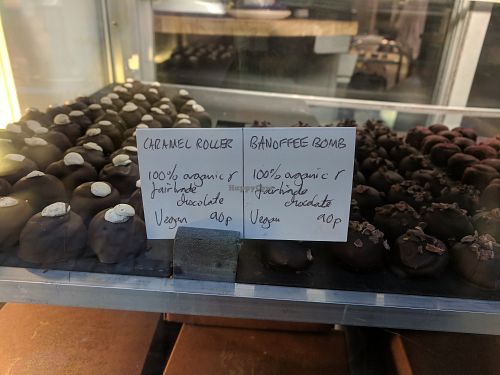 CARAMEL ROLLER
100% organic &
fairtrade
chocolate
Vegan 90p
BANOFFEE BOMB
100% organic &
fairtrade
chocolate
Vegan 90p